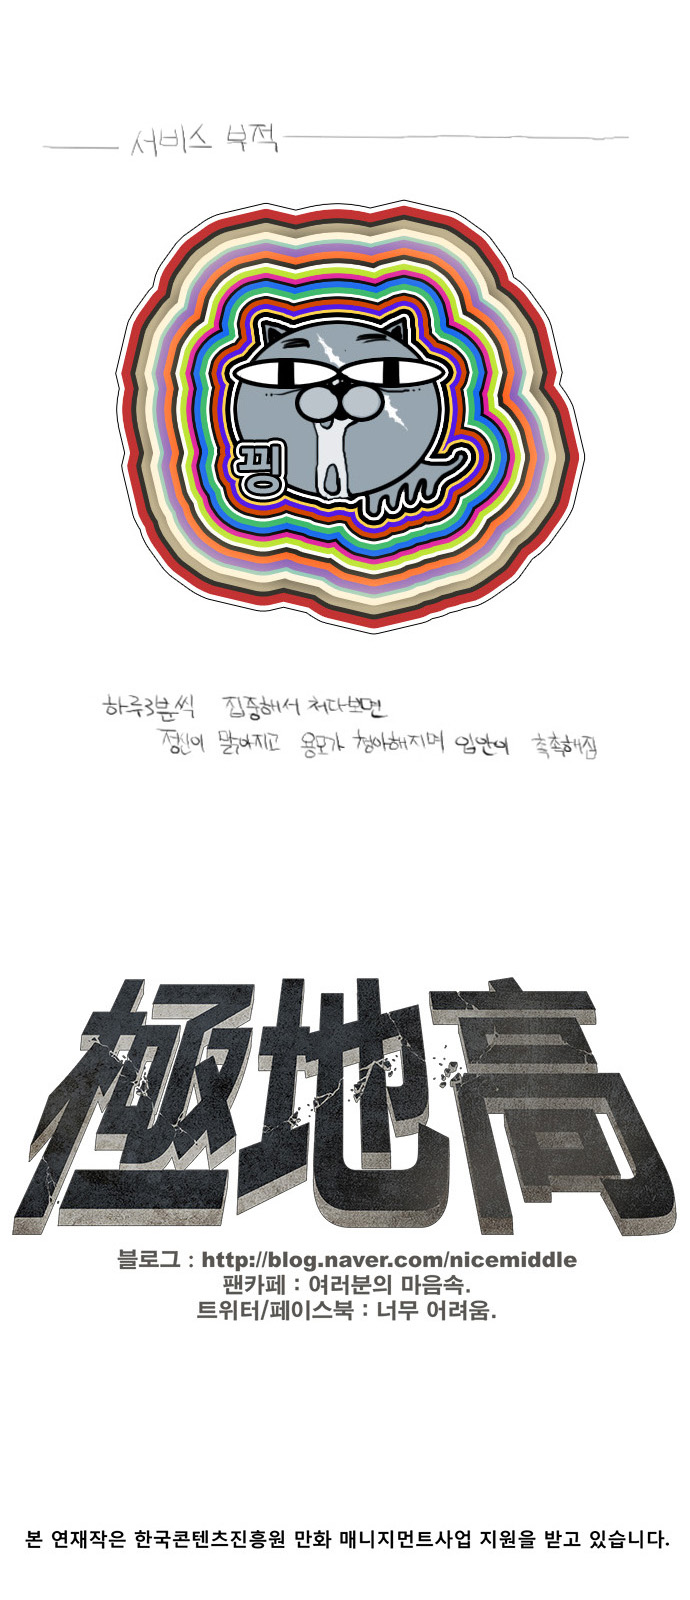 서비스 부적
핑
하루3분씩 집중해서 쳐다보면
정신이 맑아지고 용모가 청아해지며 입안이 촉촉해짐
極地高
블로그 : http://blog.naver.com/nicemiddle
팬카페 : 여러분의 마음속.
트위터/페이스북 : 너무 어려움.
본 연재작은 한국콘텐츠진흥원 만화 매니지먼트사업 지원을 받고 있습니다.